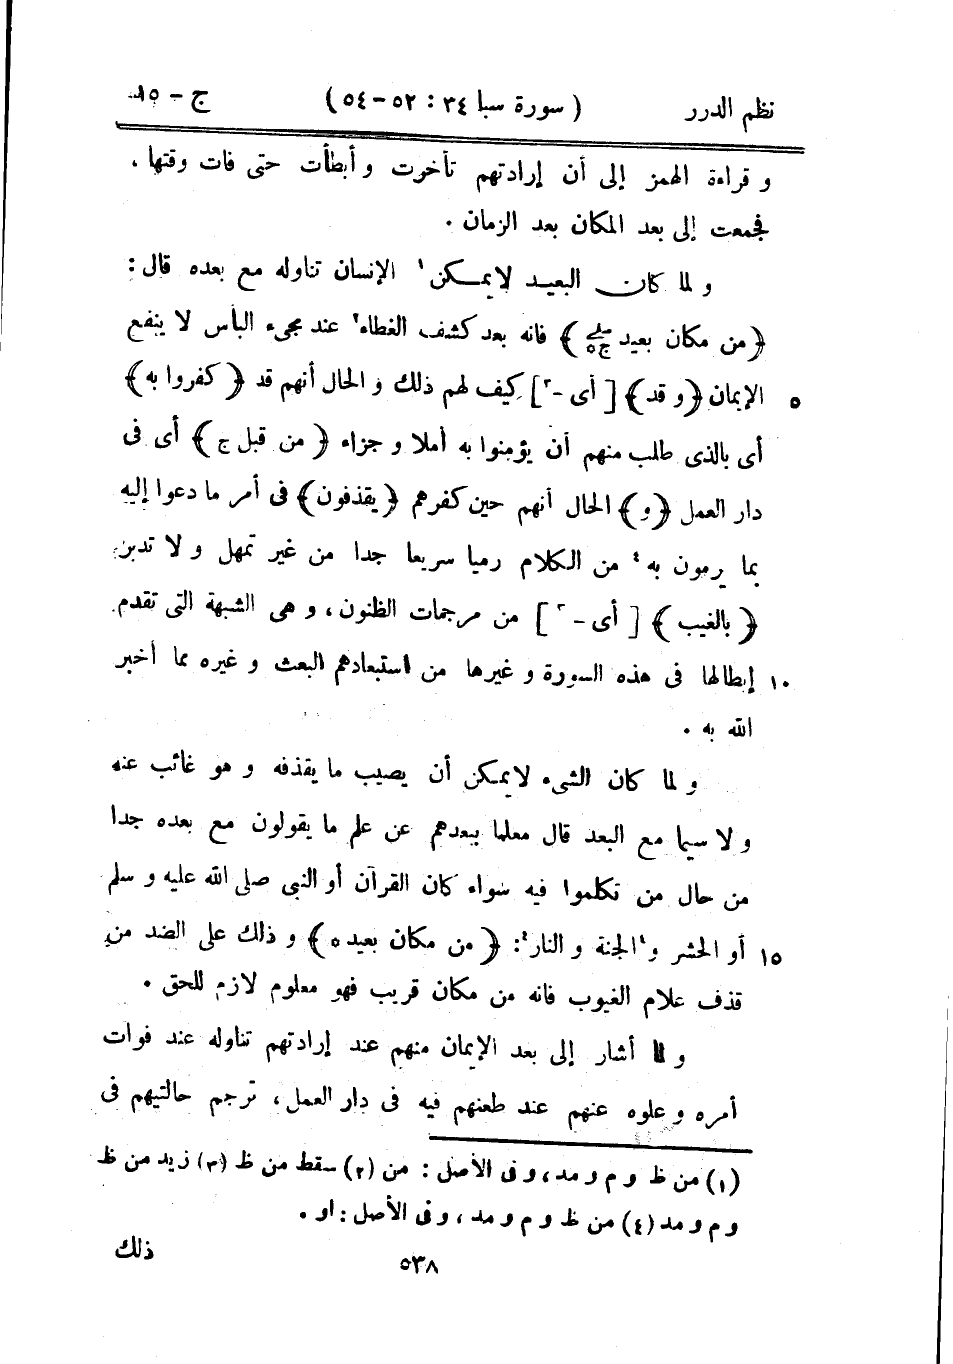 نظم الدرر ( سورة سبا ٣٤ : ٥٢ – ٥٤ ) ج – ١٥
و قراءة الهمز إلى أن إرادتهم تأخرت و أبطأت حتى فات وقتها ،
فجمعت إلى بعد المكان بعد الزمان .
و لما كان البعيد لا يمكن ١ الإنسان تناوله مع بعده قال :
﴿ من مكان بعيد ﴾ فانه بعد كشف الغطاء ٢ عند مجىء البأس لا ينفع
٥ الإيمان ﴿ و قد ﴾ [ أى - ٣ ] كيف لهم ذلك و الحال أنهم قد ﴿ كفروا به ﴾
أى بالذى طلب منهم أن يؤمنوا به أملا و جزاء ﴿ من قبل ج ﴾ أى فى
دار العمل ﴿ و ﴾ الحال أنهم حين كفرهم ﴿ يقذفون ﴾ فى أمر ما دعوا إليه
بما يرمون به ٤ من الكلام رميا سريعا جدا من غير تمهل و لا تدبر
﴿ بالغيب ﴾ [ أى - ٣ ] من مرجمات الظنون ، و هى الشبهة التى تقدم
١٠ إبطالها فى هذه السورة و غيرها من استبعادهم البعث و غيره مما أخبر
الله به .
و لما كان الشىء لا يمكن أن يصيب ما يقذفه و هو غائب عنه
و لا سيما مع البعد قال معلما ببعدهم عن علم ما يقولون مع بعده جدا
من حال من تكلموا فيه سواء كان القرآن أو النبى صلى الله عليه و سلم
١٥ أو الحشر و ٤ الجنة و النار ٤ : ﴿ من مكان بعيد ٥ ﴾ و ذلك على الضد من
قذف علام الغيوب فانه من مكان قريب فهو معلوم لازم للحق .
و لما أشار إلى بعد الإيمان منهم عند إرادتهم تناوله عند فوات
أمره و علوه عنهم عند طعنهم فيه فى دار العمل ، ترجم حالتيهم فى
(١) من ظ و م و مد ، و فى الأصل : من (٢) سقط من ظ (٣) زيد من ظ
و م و مد (٤) من ظ و م و مد ، و فى الأصل : او .
ذلك
٥٣٨